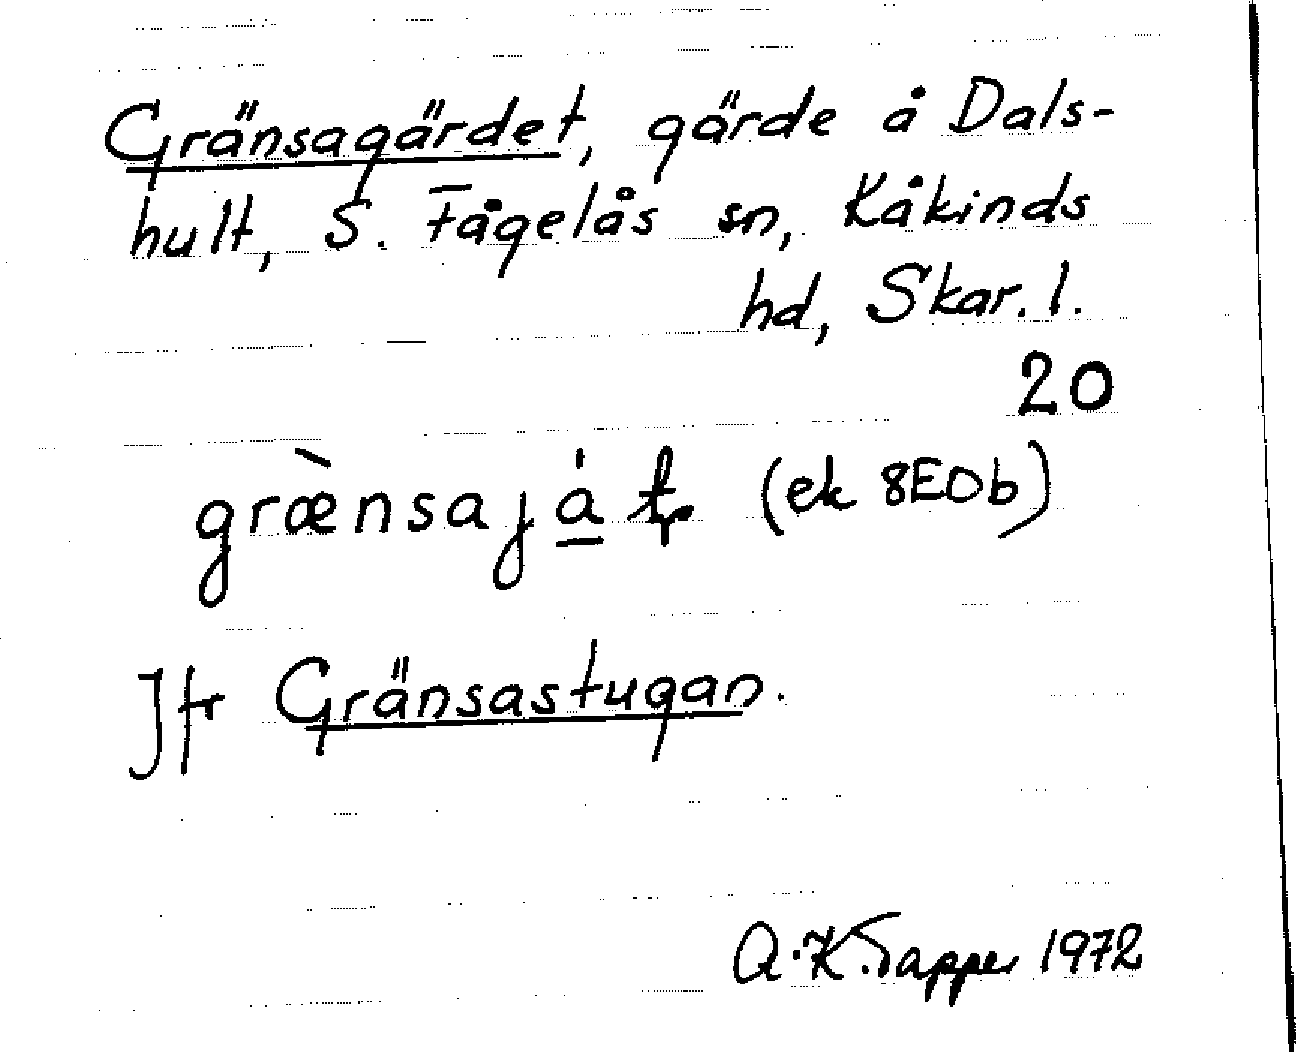 Gränsagärdet, gärde å Dals-
hult, S. Fågelås sn, Kåkinds
hd, Skar. l.
20
(ek 8E0b)
Jfr Gränsastugan.
A.K. Tapper 1972